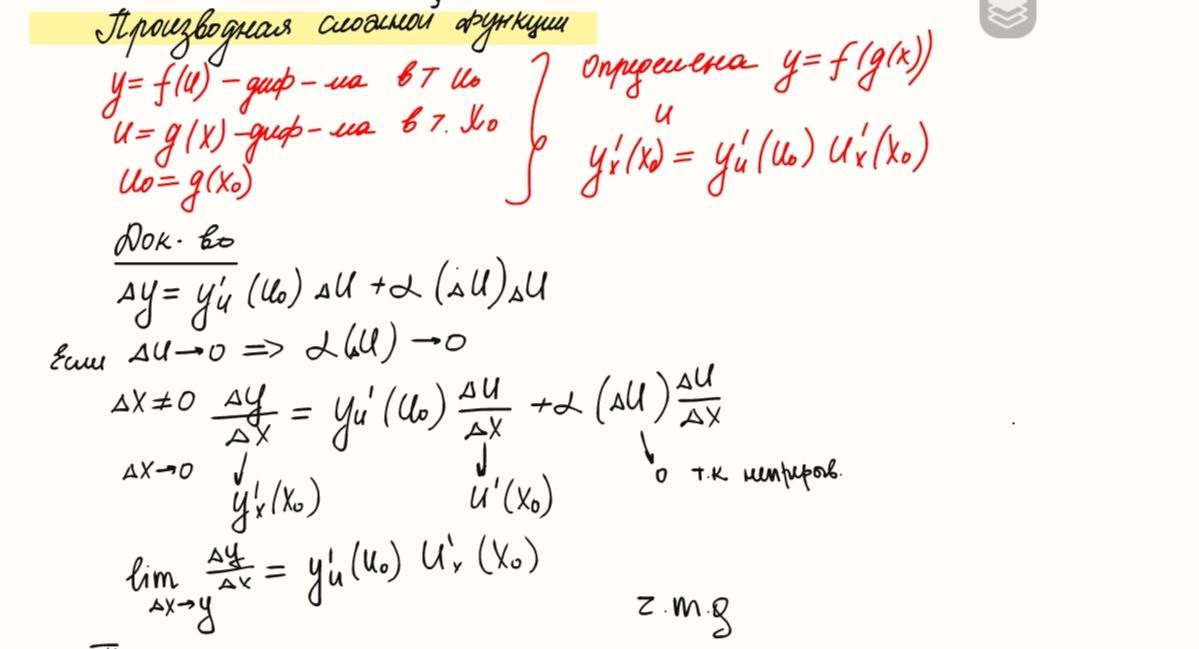 Производная сложной функции
y = f(u) – диф-ма в т u₀
u = g(x) – диф-ма в т. x₀
u₀ = g(x₀)
} определена y = f(g(x))
и
y'ₓ(x₀) = y'ᵤ(u₀) u'ₓ(x₀)
Док-во
Δy = y'ᵤ(u₀) Δu + α(Δu)Δu
Если Δu → 0 => α(Δu) → 0
Δx ≠ 0 Δy/Δx = yᵤ'(u₀) Δu/Δx + α(Δu) Δu/Δx
Δx → 0 ↓ ↓ ↘ 0 т.к непрерыв.
y'ₓ(x₀) u'(x₀)
lim Δy/Δx = y'ᵤ(u₀) u'ₓ(x₀)
Δx → y
ч.т.д